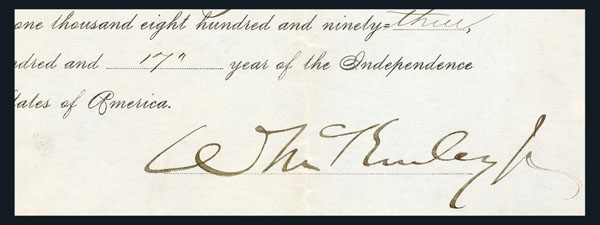 one thousand eight hundred and ninety=three,
ndred and 17" year of the Independence
States of America.
Wm McKinley Jr